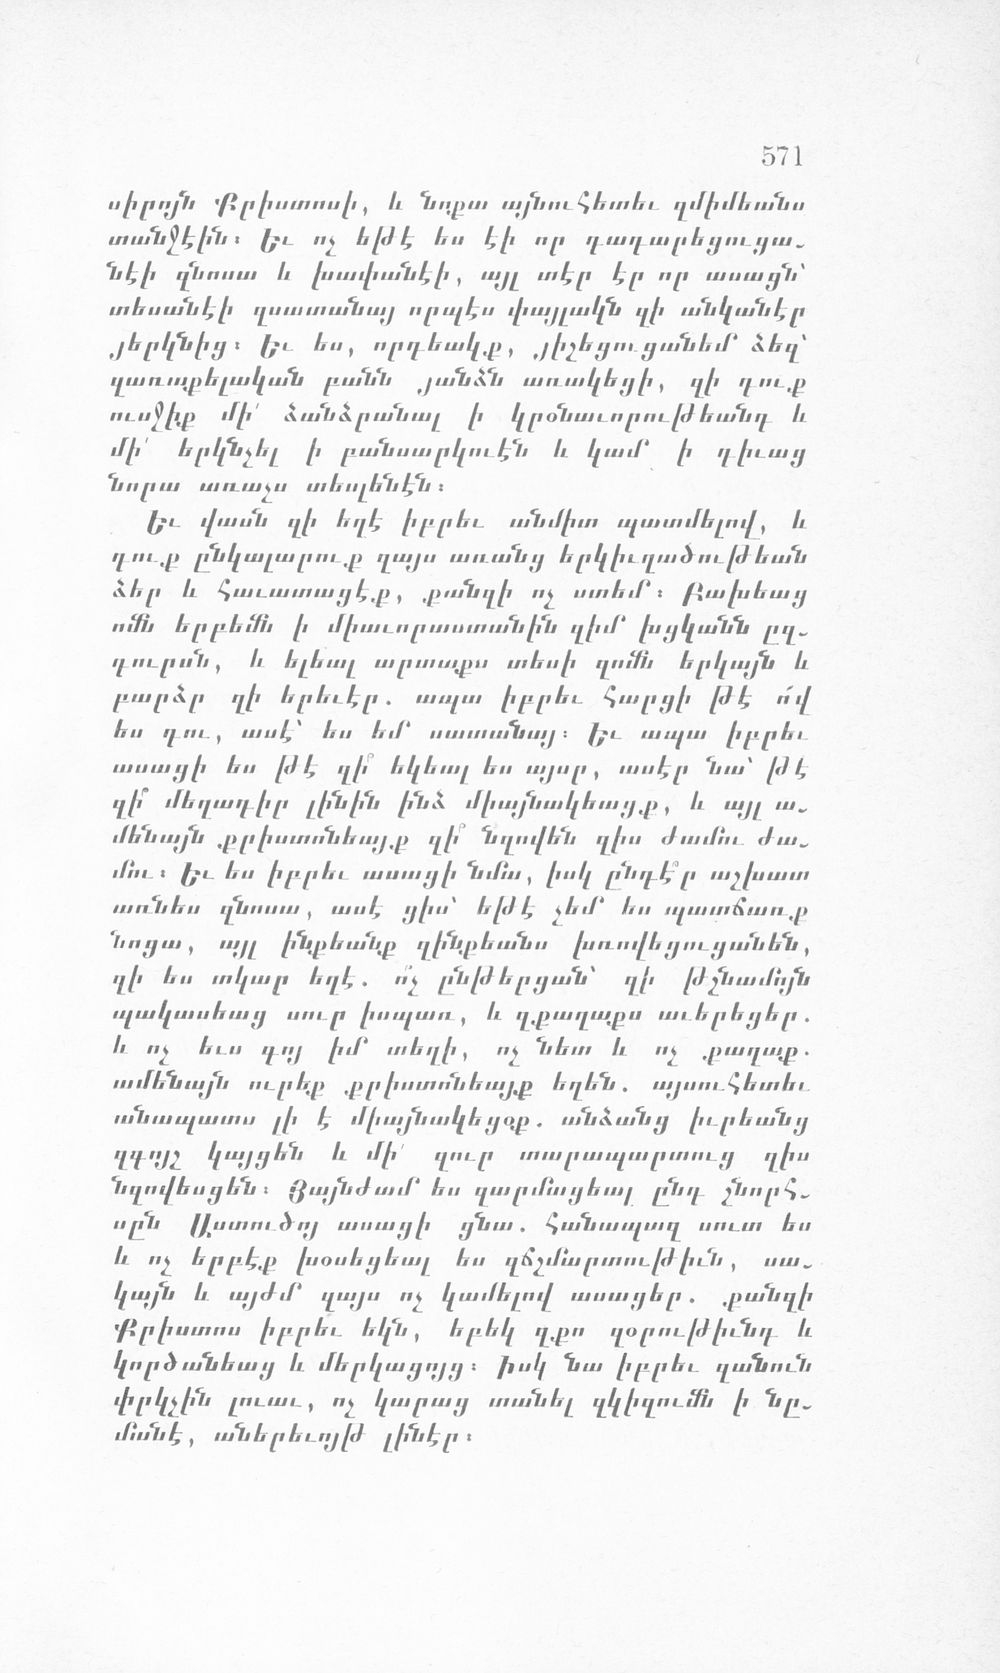 571
սիրոյն Քրիստոսի, և նոքա այնուհետեւ զմիմեանս
տանջէին։ Եւ ոչ եթէ ես էի որ դադարեցուցա֊
նէի զնոսա և խափանէի, այլ տէր էր որ ասացն՝
տեսանէի զսատանայ որպէս փայլակն զի անկանէր
յերկնից։ Եւ ես, որդեակք, յիշեցուցանեմ ձեզ՝
զառաքելական բանն յանձն առակեցի, զի դուք
ուսջիք մի՛ ձանձրանալ ի կրօնաւորութեանդ և
մի՛ երկնչել ի բանսարկուէն և կամ ի դիւաց
նորա առաչս տեսլենէն։
Եւ վասն զի եղէ իբրեւ անմիտ պատմելով, և
դուք ընկալարուք զայս առանց երկիւղածութեան
ձեր և հաւատացէք, քանզի ոչ ստեմ։ Բախեաց
ոմն երբեմն ի միաւորաստանին զիմ խցկանն ըզ֊
դուրսն, և ելեալ արտաքս տեսի զոմն երկայն և
բարձր զի երեւէր. ապա իբրեւ հարցի թէ ո՞վ
ես դու, ասէ՝ ես եմ սատանայ։ Եւ ապա իբրեւ
ասացի ես թէ զի՞ եկեալ ես այսր, ասէր նա՝ թէ
զի՞ մեղադիր լինին ինձ միայնակեացք, և այլ ա֊
մենայն քրիստոնեայք զի՞ նզովեն զիս ժամու ժա֊
մու։ Եւ ես իբրեւ ասացի նմա, իսկ ընդէ՞ր աշխատ
առնես զնոսա, ասէ ցիս՝ եթէ չեմ ես պատճառք
նոցա, այլ ինքեանք զինքեանս խռովեցուցանեն,
զի ես տկար եղէ. ո՞չ ընթերցան՝ զի թշնամւոյն
պակասեաց սուր իսպառ, և զքաղաքս աւերեցեր.
և ոչ եւս գոյ իմ տեղի, ոչ նետ և ոչ քաղաք.
ամենայն ուրեք քրիստոնեայք եղեն. այսուհետեւ
անապատս լի է միայնակեցօք. անձանց իւրեանց
զգոյշ կայցեն և մի՛ զուր տարապարտուց զիս
նզովեսցեն։ Յայնժամ ես զարմացեալ ընդ շնորհ֊
սըն Աստուծոյ ասացի ցնա. հանապազ սուտ ես
և ոչ երբէք խօսեցեալ ես զճշմարտութիւն, սա֊
կայն և այժմ զայս ոչ կամելով ասացեր. քանզի
Քրիստոս իբրեւ եկն, եբեկ զքո զօրութիւնդ և
կործանեաց և մերկացոյց։ Իսկ նա իբրեւ զանուն
փրկչին լուաւ, ոչ կարաց տանել զկիզումն ի նը֊
մանէ, աներեւոյթ լինէր։